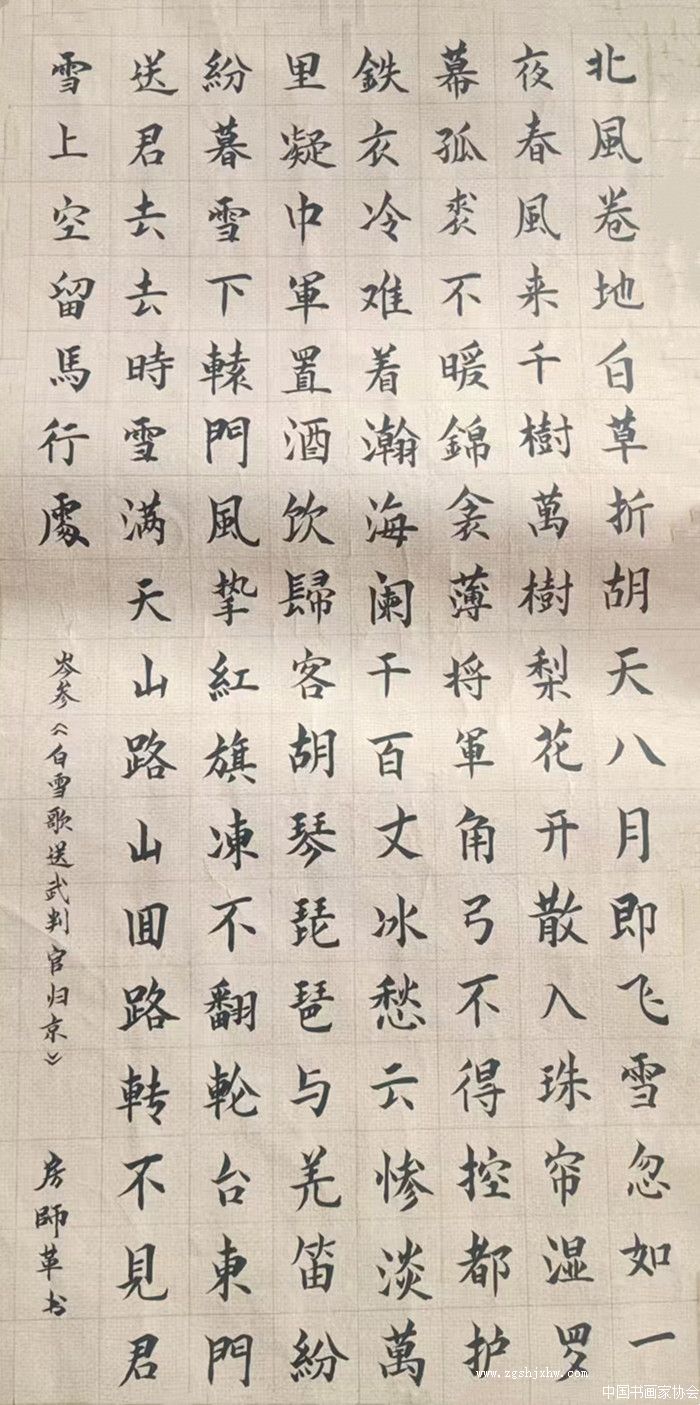 北風卷地白草折胡天八月即飞雪忽如一
夜春風来千樹萬樹梨花开散入珠帘湿罗
幕孤裘不暖錦衾薄将軍角弓不得控都护
鉄衣冷难着瀚海阑干百丈冰愁云惨淡萬
里凝巾軍置酒饮歸客胡琴琵琶与羌笛紛
紛暮雪下轅門風挚紅旗凍不翻輪台東門
送君去去時雪满天山路山囬路转不見君
雪上空留馬行處
岑参《白雪歌送武判官归京》
房師革书
www.zgshjxhw.com
中国书画家协会